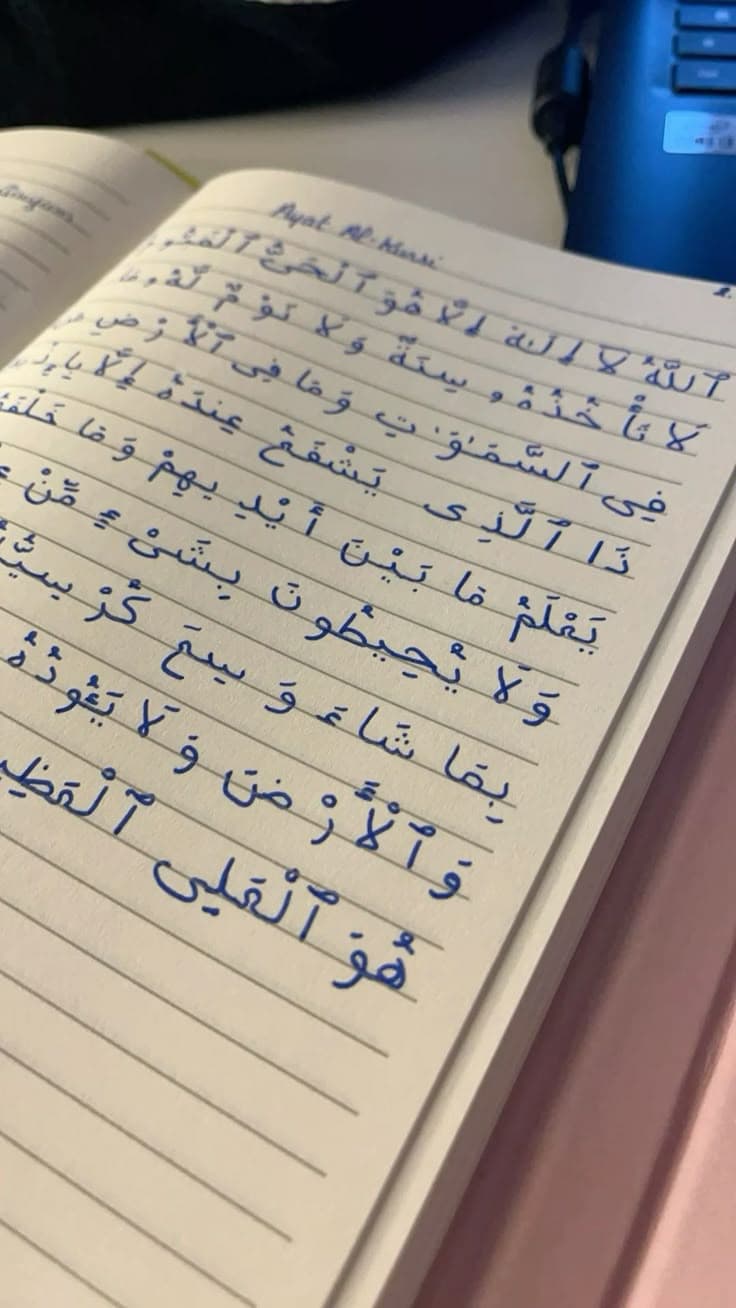 Ayat Al-Kursi
ٱللَّهُ لَآ إِلَـٰهَ إِلَّا هُوَ ٱلْحَىُّ
لَا تَأْخُذُهُۥ سِنَةٌ وَلَا نَوْمٌ لَّهُۥ مَا
فِى ٱلسَّمَـٰوَٰتِ وَمَا فِى ٱلْأَرْضِ
ذَا ٱلَّذِى يَشْفَعُ عِندَهُۥ إِلَّا
يَعْلَمُ مَا بَيْنَ أَيْدِيهِمْ وَمَا
وَلَا يُحِيطُونَ بِشَىْءٍ مِّنْ
بِمَا شَاءَ وَسِعَ
وَٱلْأَرْضَ وَلَا
هُوَ ٱلْعَلِى